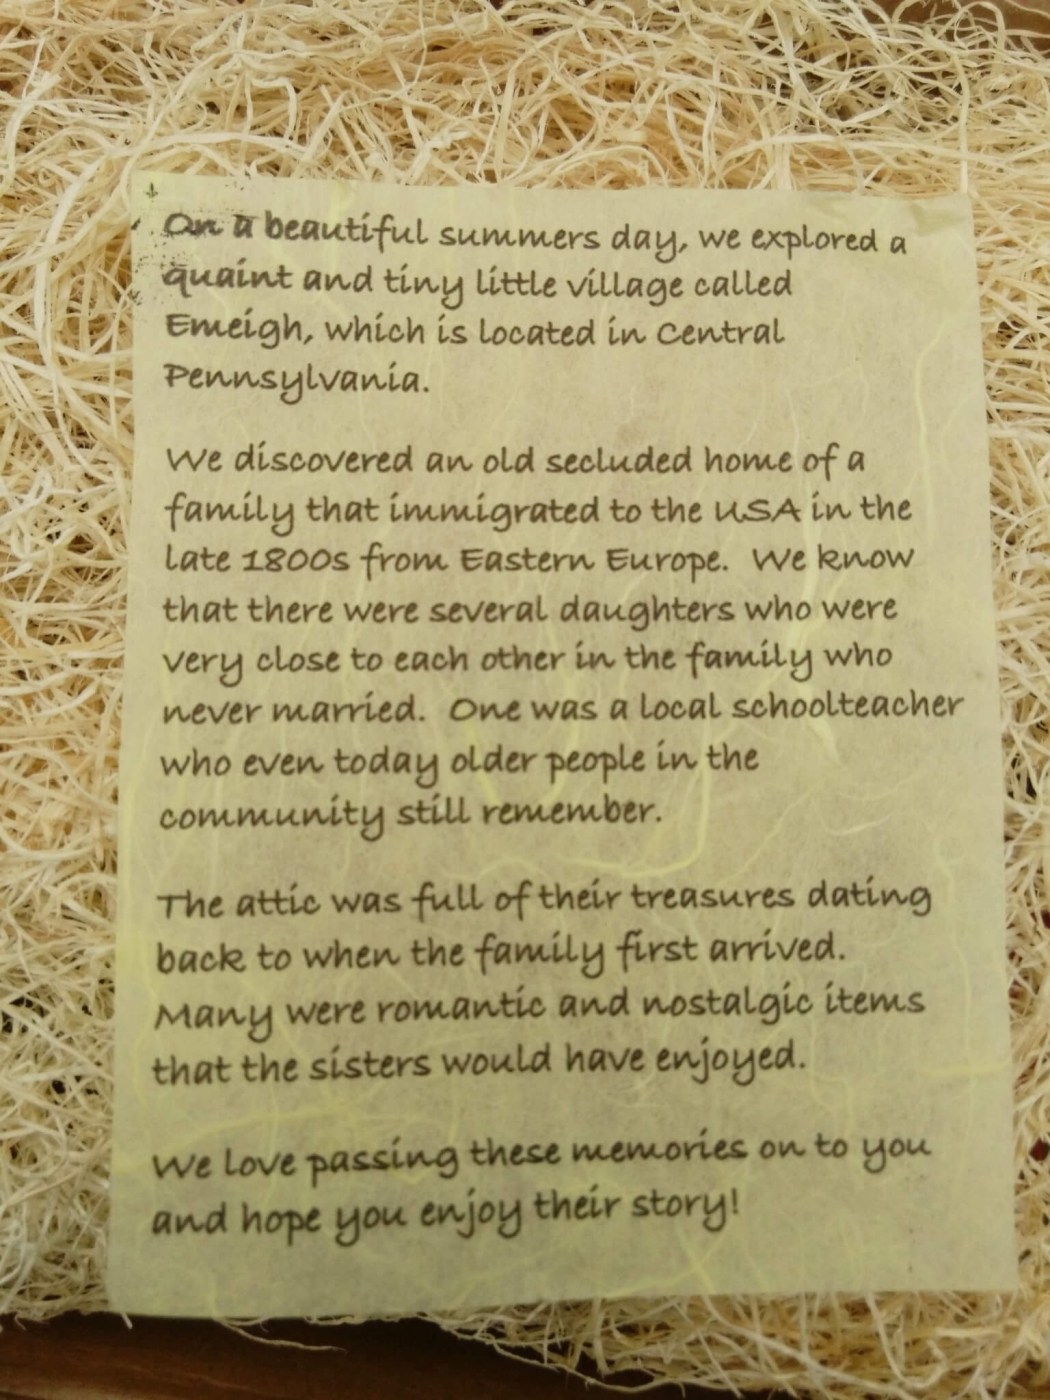 On a beautiful summers day, we explored a
quaint and tiny little village called
Emeigh, which is located in Central
Pennsylvania.
We discovered an old secluded home of a
family that immigrated to the USA in the
late 1800s from Eastern Europe. We know
that there were several daughters who were
very close to each other in the family who
never married. One was a local schoolteacher
who even today older people in the
community still remember.
The attic was full of their treasures dating
back to when the family first arrived.
Many were romantic and nostalgic items
that the sisters would have enjoyed.
We love passing these memories on to you
and hope you enjoy their story!